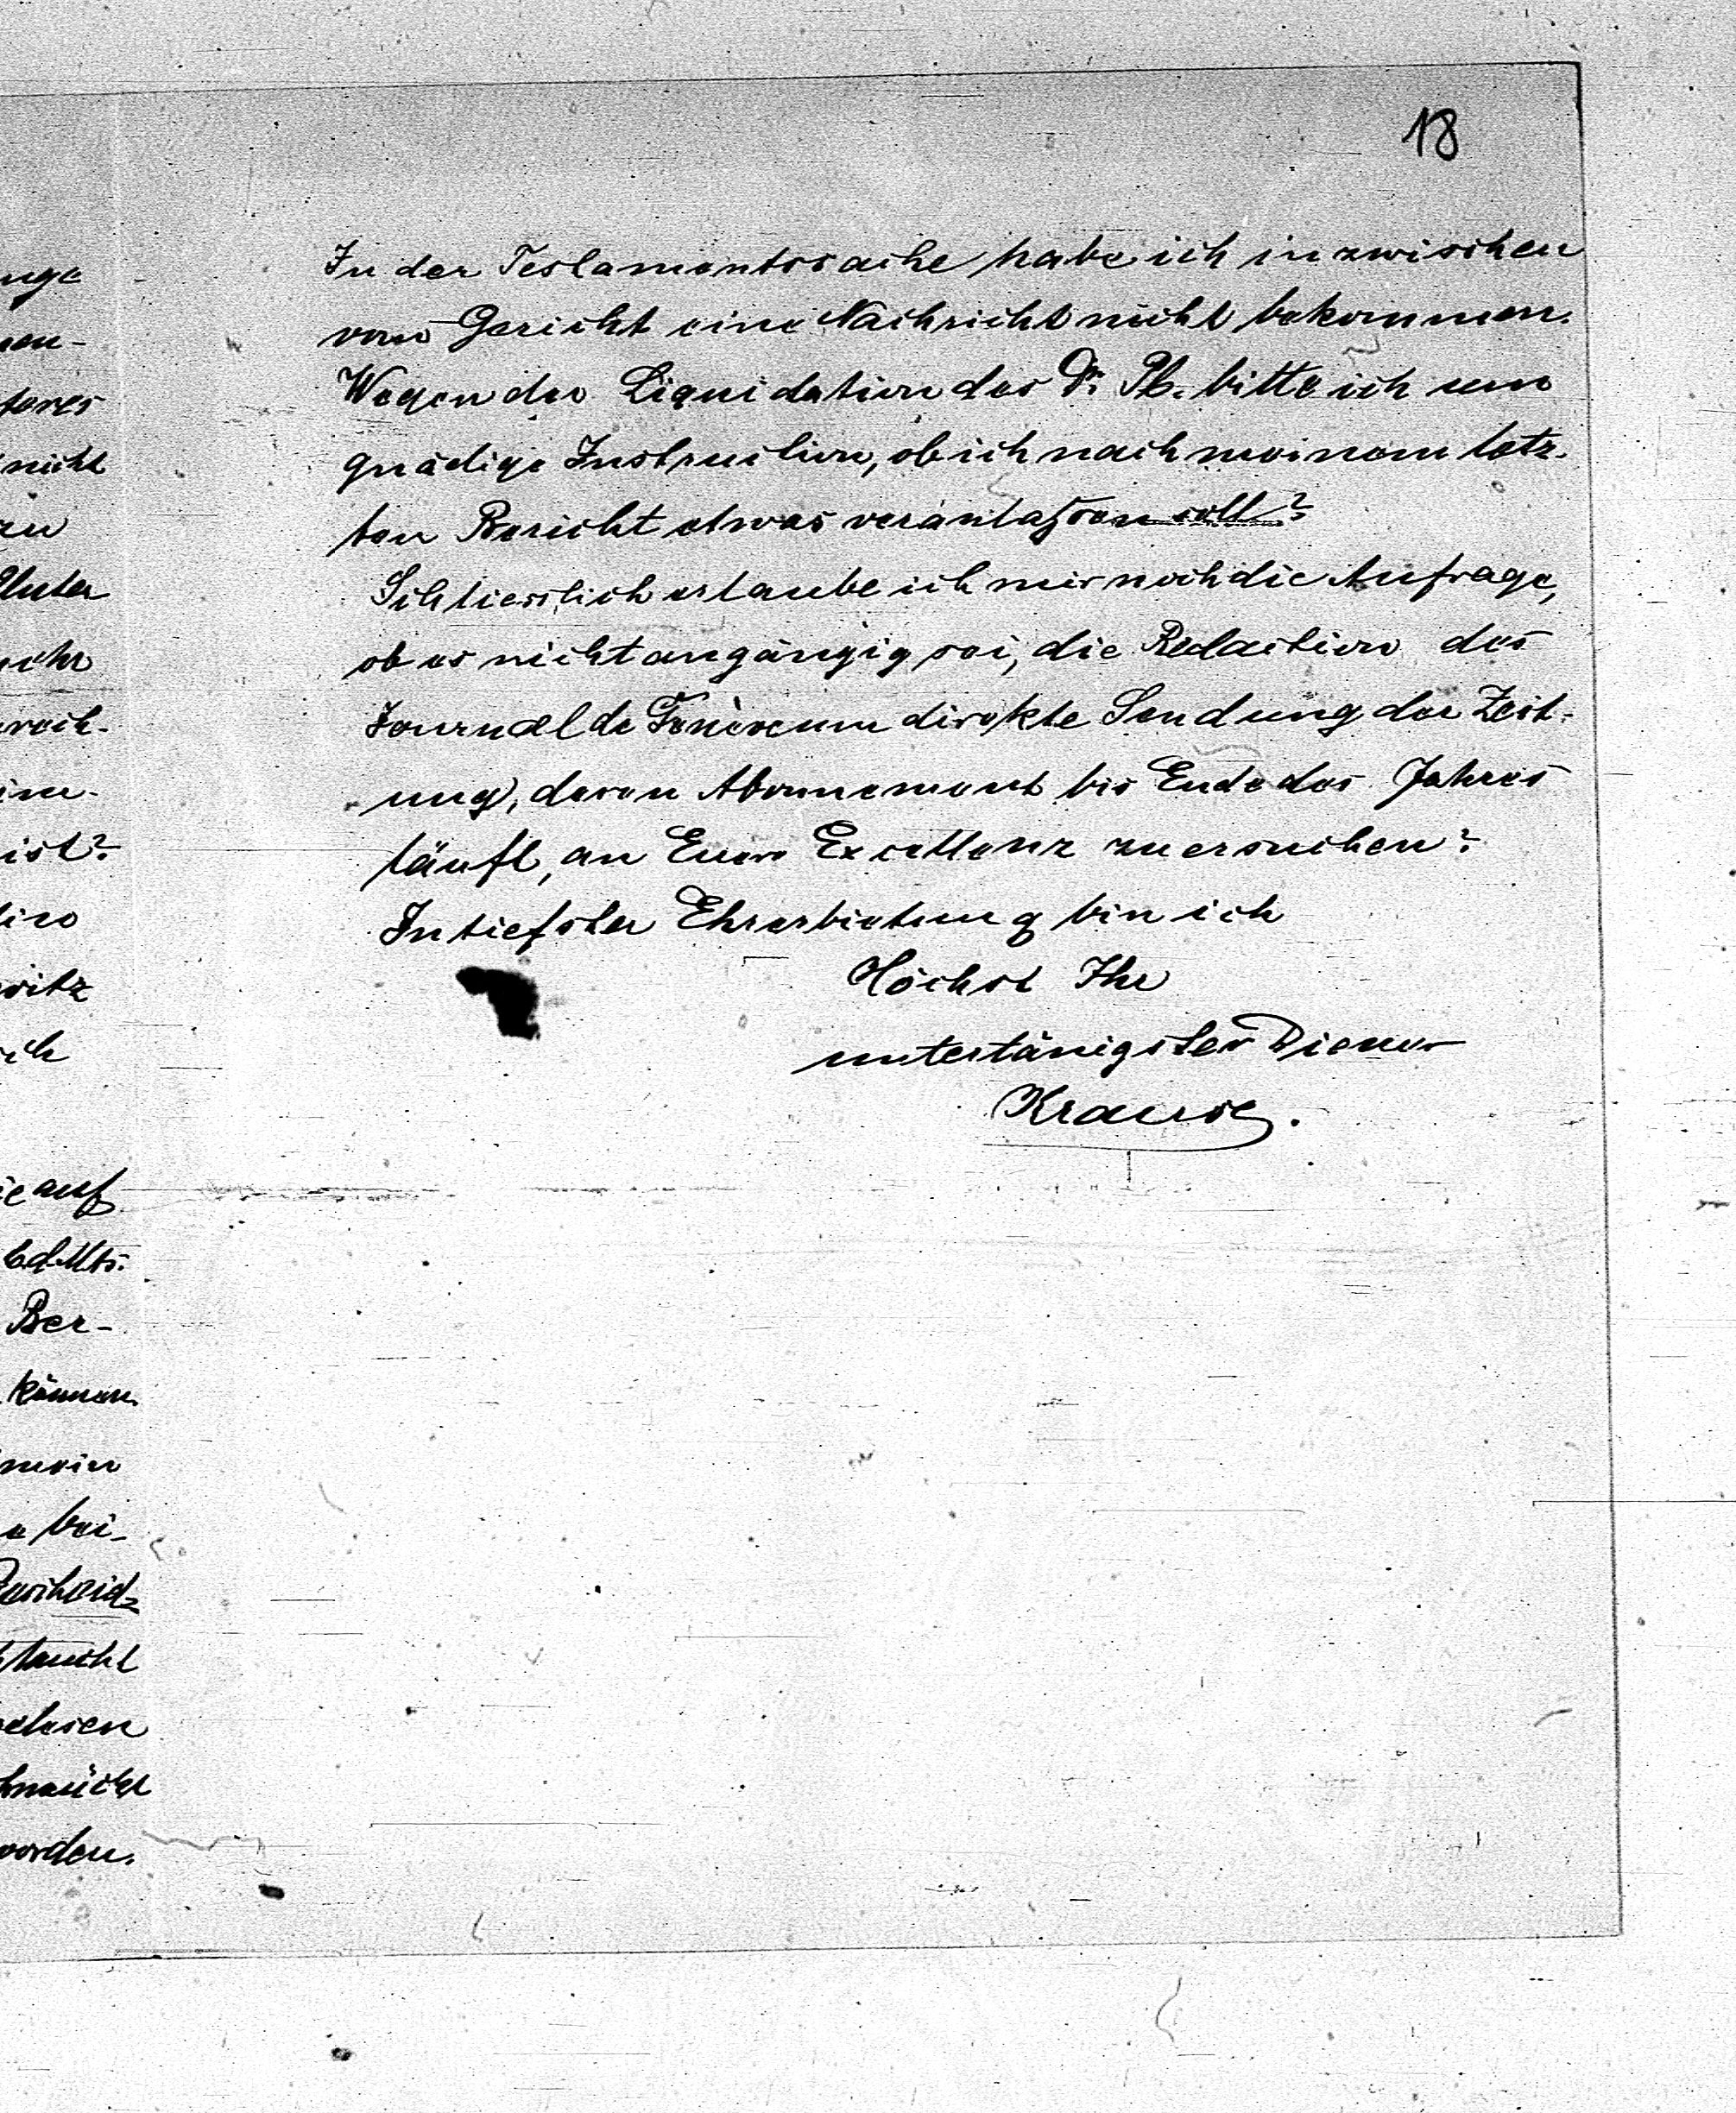 18
In der Testamentssache habe ich inzwischen
vom Gericht eine Nachricht nicht bekommen.
Wegen der Liquidation des Dr. Pb. bitte ich um
gnädige Instruction, ob ich nach meinem letz-
ten Bericht etwas veranlassen soll?
Schliesslich erlaube ich mir noch die Anfrage,
ob es nicht angängig sei, die Redaction des
Journal de direkte Sendung der Zeit-
ung, deren Abonnement bis Ende des Jahres
läuft, an Euere Excellenz zu ersuchen?
In tiefster Ehrerbietung bin ich
Höchst Ihr
untertänigster Diener
Krause.
nicht
zu
ist?
auf
Ber-
können
mein
bei-
worden.